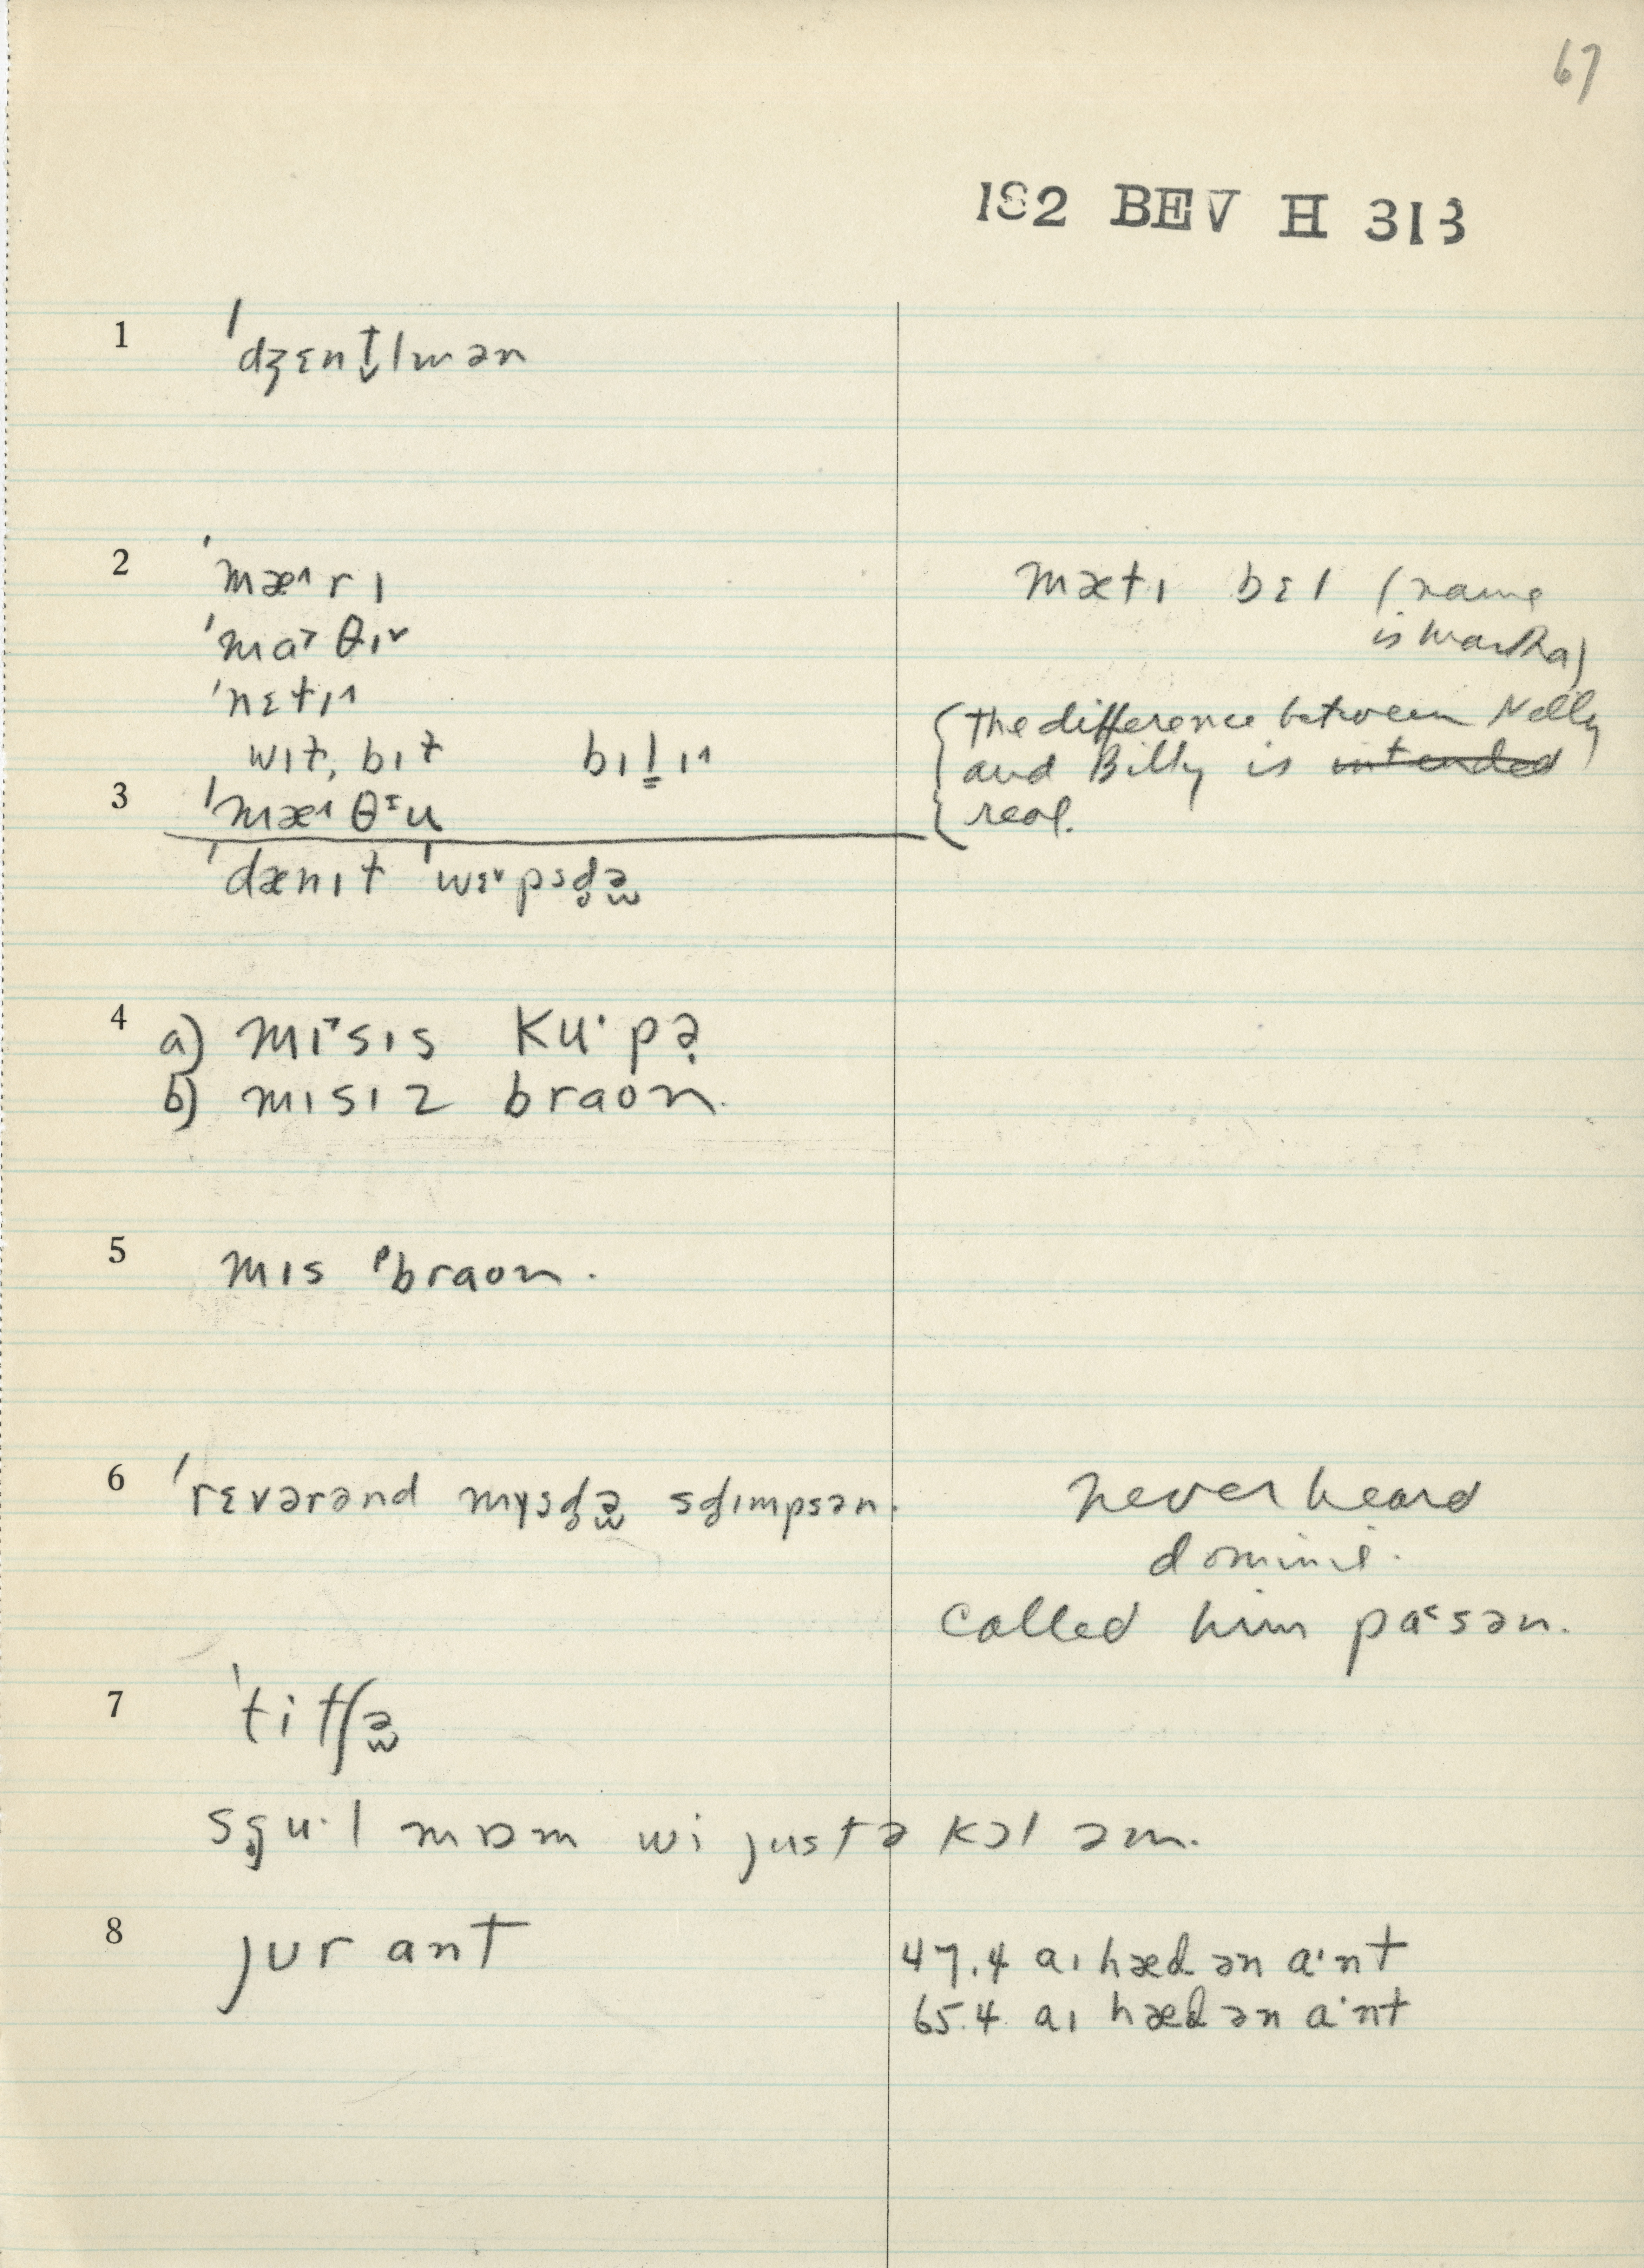 67
182 BEV H 313
1 ˈdʒɛnt̬lmən
2 ˈmæ˄rɪ
ˈma˃θɪ˅
ˈnɛɫɪ˄
wɪɫ, bɪɫ bɪl̳ɪ˄
mæɫɪ bɛl (name
is Martha)
{the difference between Nelly
and Billy is intended
real.
3 ˈmæ˄θᶦu
ˈdænɪɫ ˈwɛ˅psd̥ə
4 a) mɪ˃sɪs ku·pə
b) mɪsɪz braon.
5 mɪs ˈbraon.
6 ˈrɛvərənd mysd̥ə sd̥ɪmpsən.
never heard
dominie.
called him pa˂sən.
7 ˈtitʃə
sg̥u·l mɒm wi justə kɔl əm.
8 jʊr ant
47.4 aɪ hæd ən a·nt
65.4 aɪ hæd ən a·nt